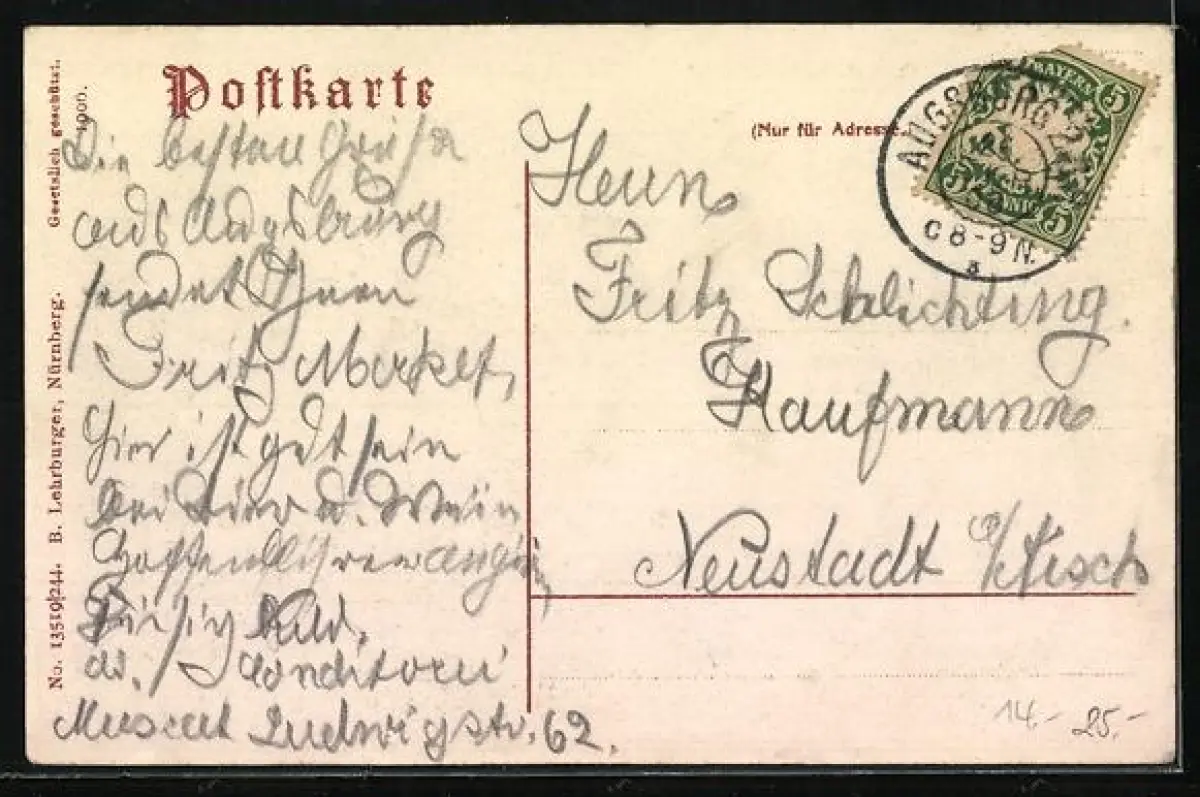 Postkarte
(Nur für Adresse.)
Gesetzlich geschützt.
1906.
No. 13519/244. B. Lehrburger, Nürnberg.
BAYERN
5 5
PFENNIG 5
AUGSBURG 2
8-9 N.
Die besten Grüße
aus Augsburg
sendet Ihnen
Fritz
Hier ist gut sein
bei Bier u. Wein
Hoffentlich
Conditorei
Ludwigstr. 62.
Herrn
Fritz Schlichting.
Kaufmann
Neustadt a/Aisch
14.- 25.-